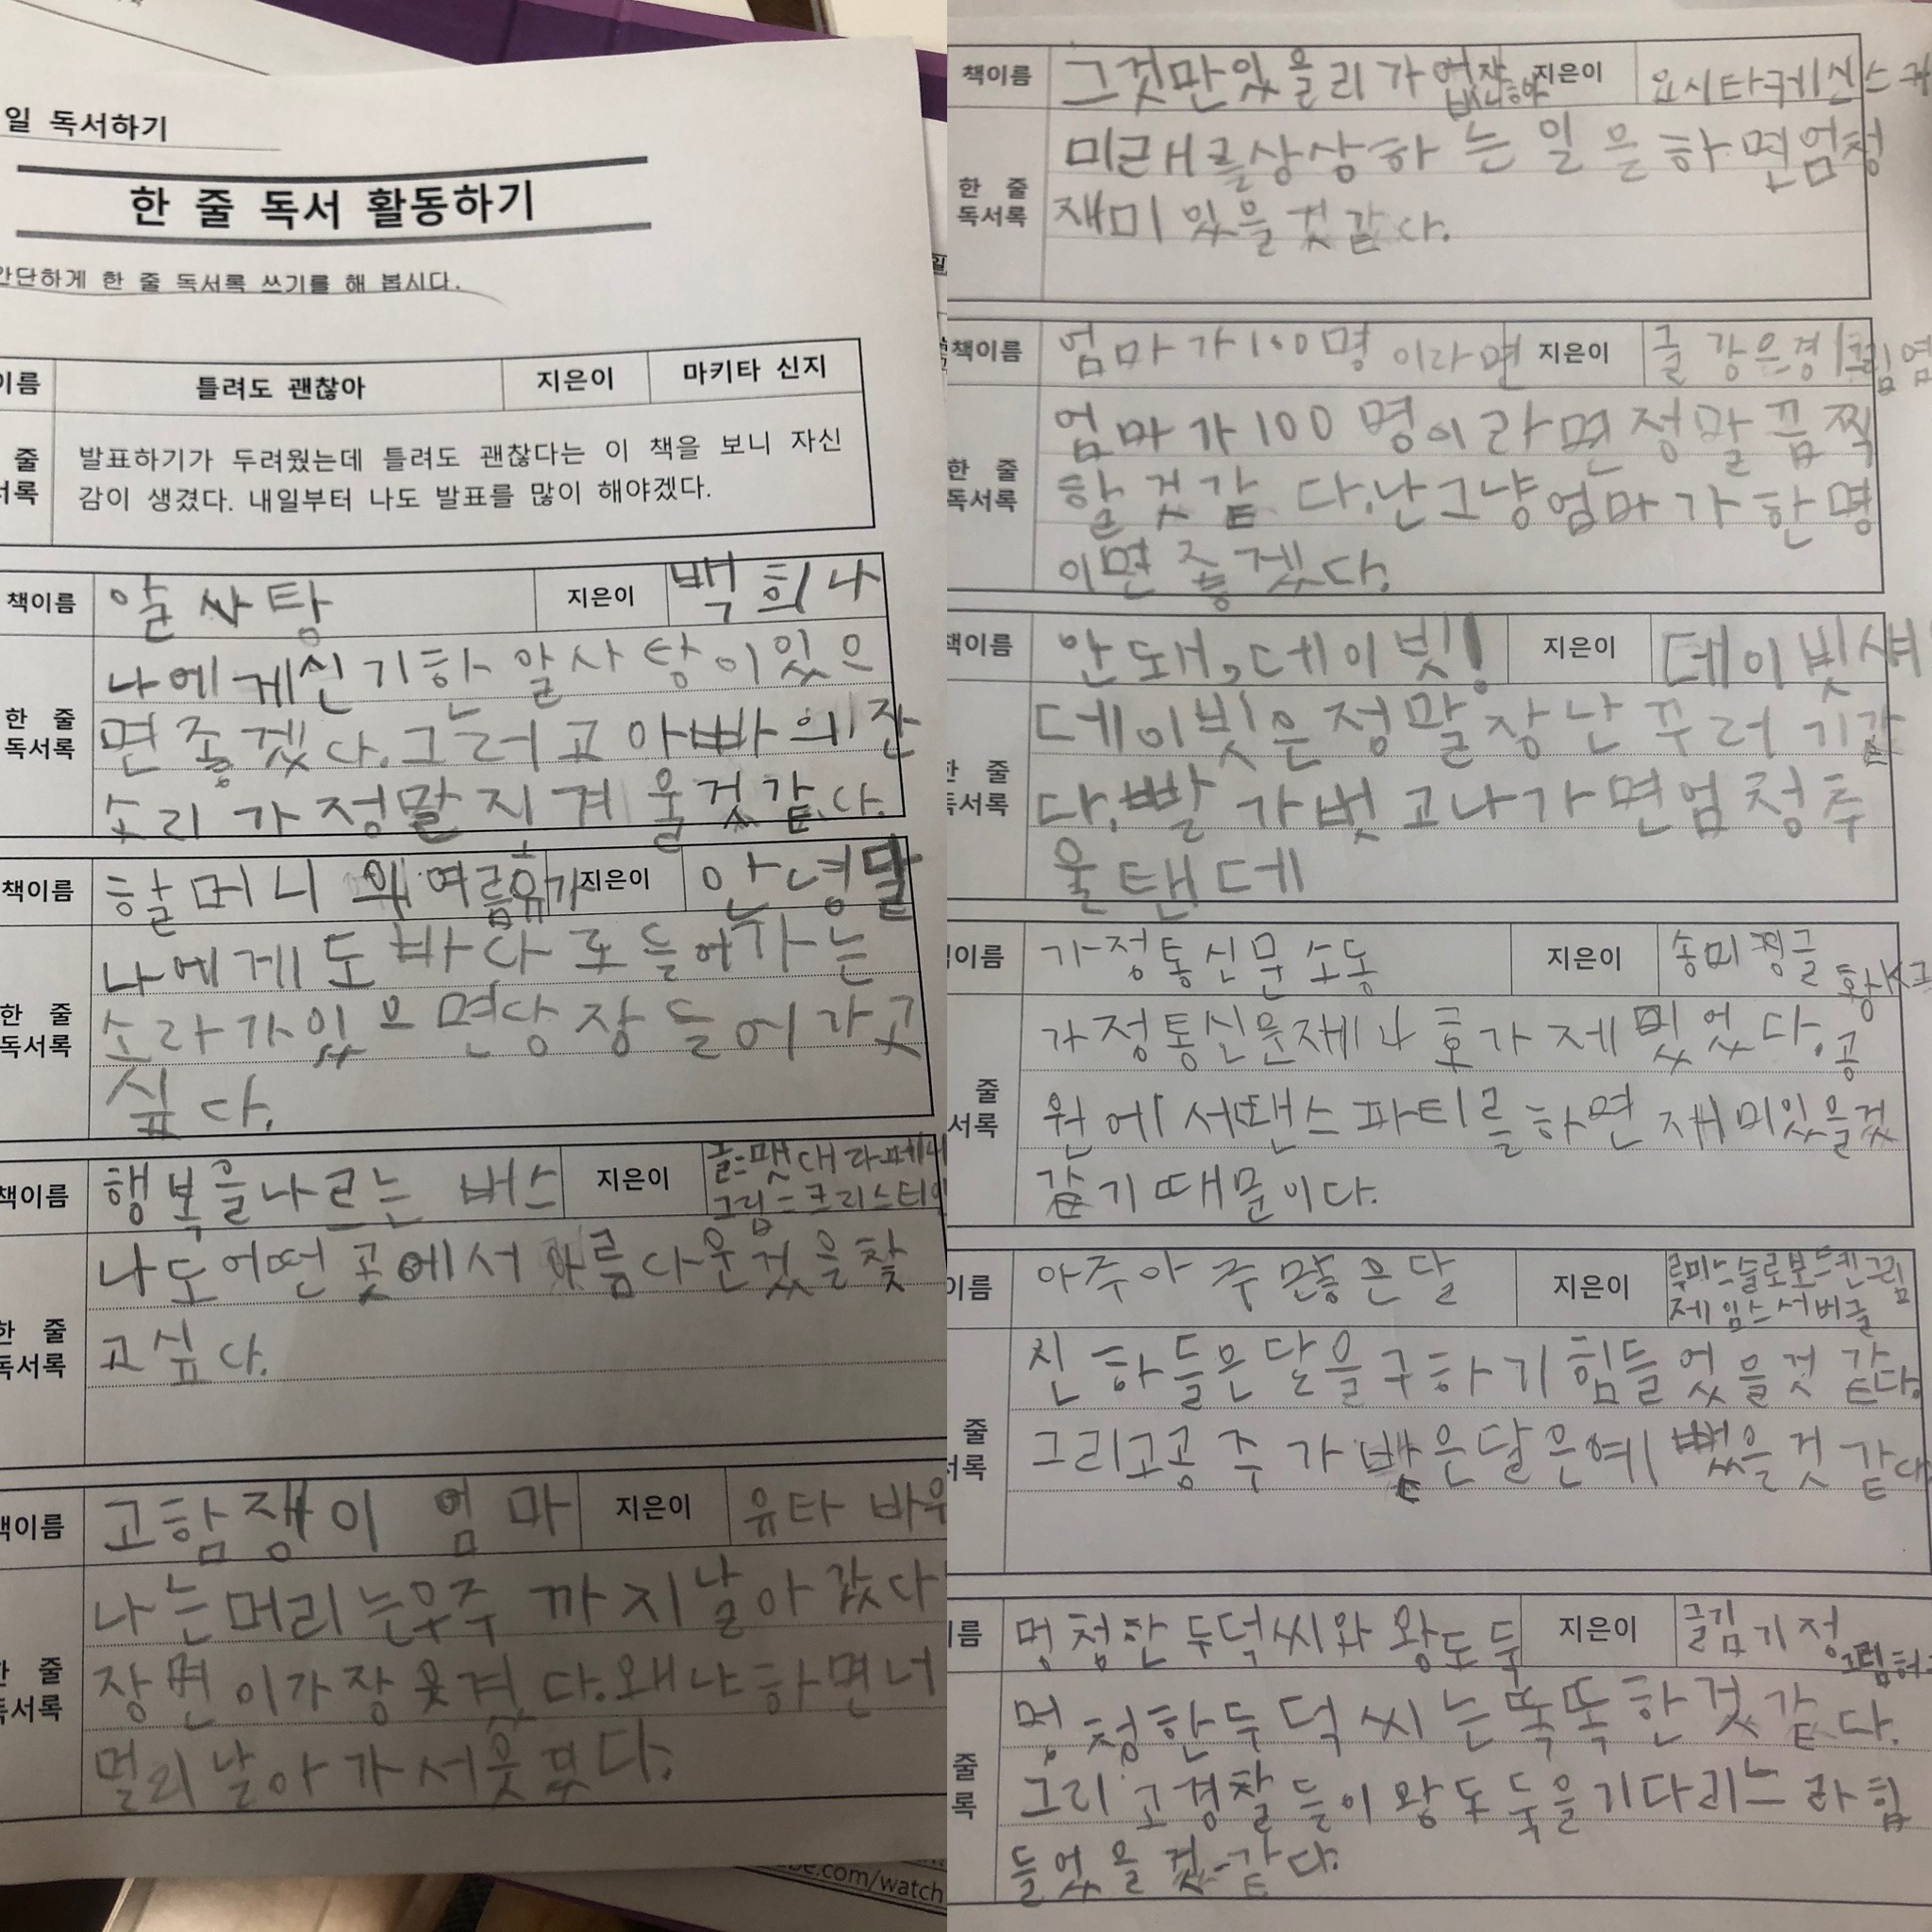 일 독서하기
한 줄 독서 활동하기
간단하게 한 줄 독서록 쓰기를 해 봅시다.
이름 틀려도 괜찮아 지은이 마키타 신지
줄 서록
발표하기가 두려웠는데 틀려도 괜찮다는 이 책을 보니 자신
감이 생겼다. 내일부터 나도 발표를 많이 해야겠다.
책이름 알싸탕 지은이 백희나
한 줄 독서록
나에게신기한알사탕이있으
면좋겠다.그러고아빠의잔
소리가정말지겨울것같다.
책이름 할머니 왜 여름휴가 지은이 안녕달
한 줄 독서록
나에게도바다로들어가는
소라가있으면당장들어가고
싶다.
책이름 행복을나르는 버스 지은이 글-맷 대 라 페냐
그림-크리스티안
한 줄 독서록
나도어떤곳에서아름다운겄을찾
고싶다.
책이름 고함쟁이 엄마 지은이 유타 바우
한 줄 독서록
나는머리는우주까지날아갔다
장면이가장웃겼다.왜냐하면너
멀리날아가서웃
책이름 그것만있을리가없잖아 지은이 요시타케신스케
한 줄 독서록
미래를상상하는일을하면엄청
재미있을것같다.
책이름 엄마가100명이라면 지은이 글 강은경
한 줄 독서록
엄마가100명이라면정말끔찍
할것같다.난그냥엄마가한명
이면좋겠다.
책이름 안돼,데이빗! 지은이 데이빗섀
한 줄 독서록
데이빗은정말장난꾸러기같
다.빨가벗고나가면엄청추
울탠데
이름 가정통신문 소동 지은이 송미경글
황K
줄 서록
가정통신문재나호가제밌었다.공
원에서땐스파티를하면재미있을겄
같기때문이다.
이름 아주아주많은달 지은이 루이스슬로보드킨그림
제임스서버글
줄 서록
신하들은달을구하기힘들었을것같다.
그리고공주가은달은예뻤을것같다
름 멍청한두덕씨와 왕도둑 지은이 글김기정
그림허구
줄 록
멍청한두덕씨는똑똑한것같다.
그리고경찰들이왕도둑을기다리느라힘
들었을겄같다.
be.com/watch